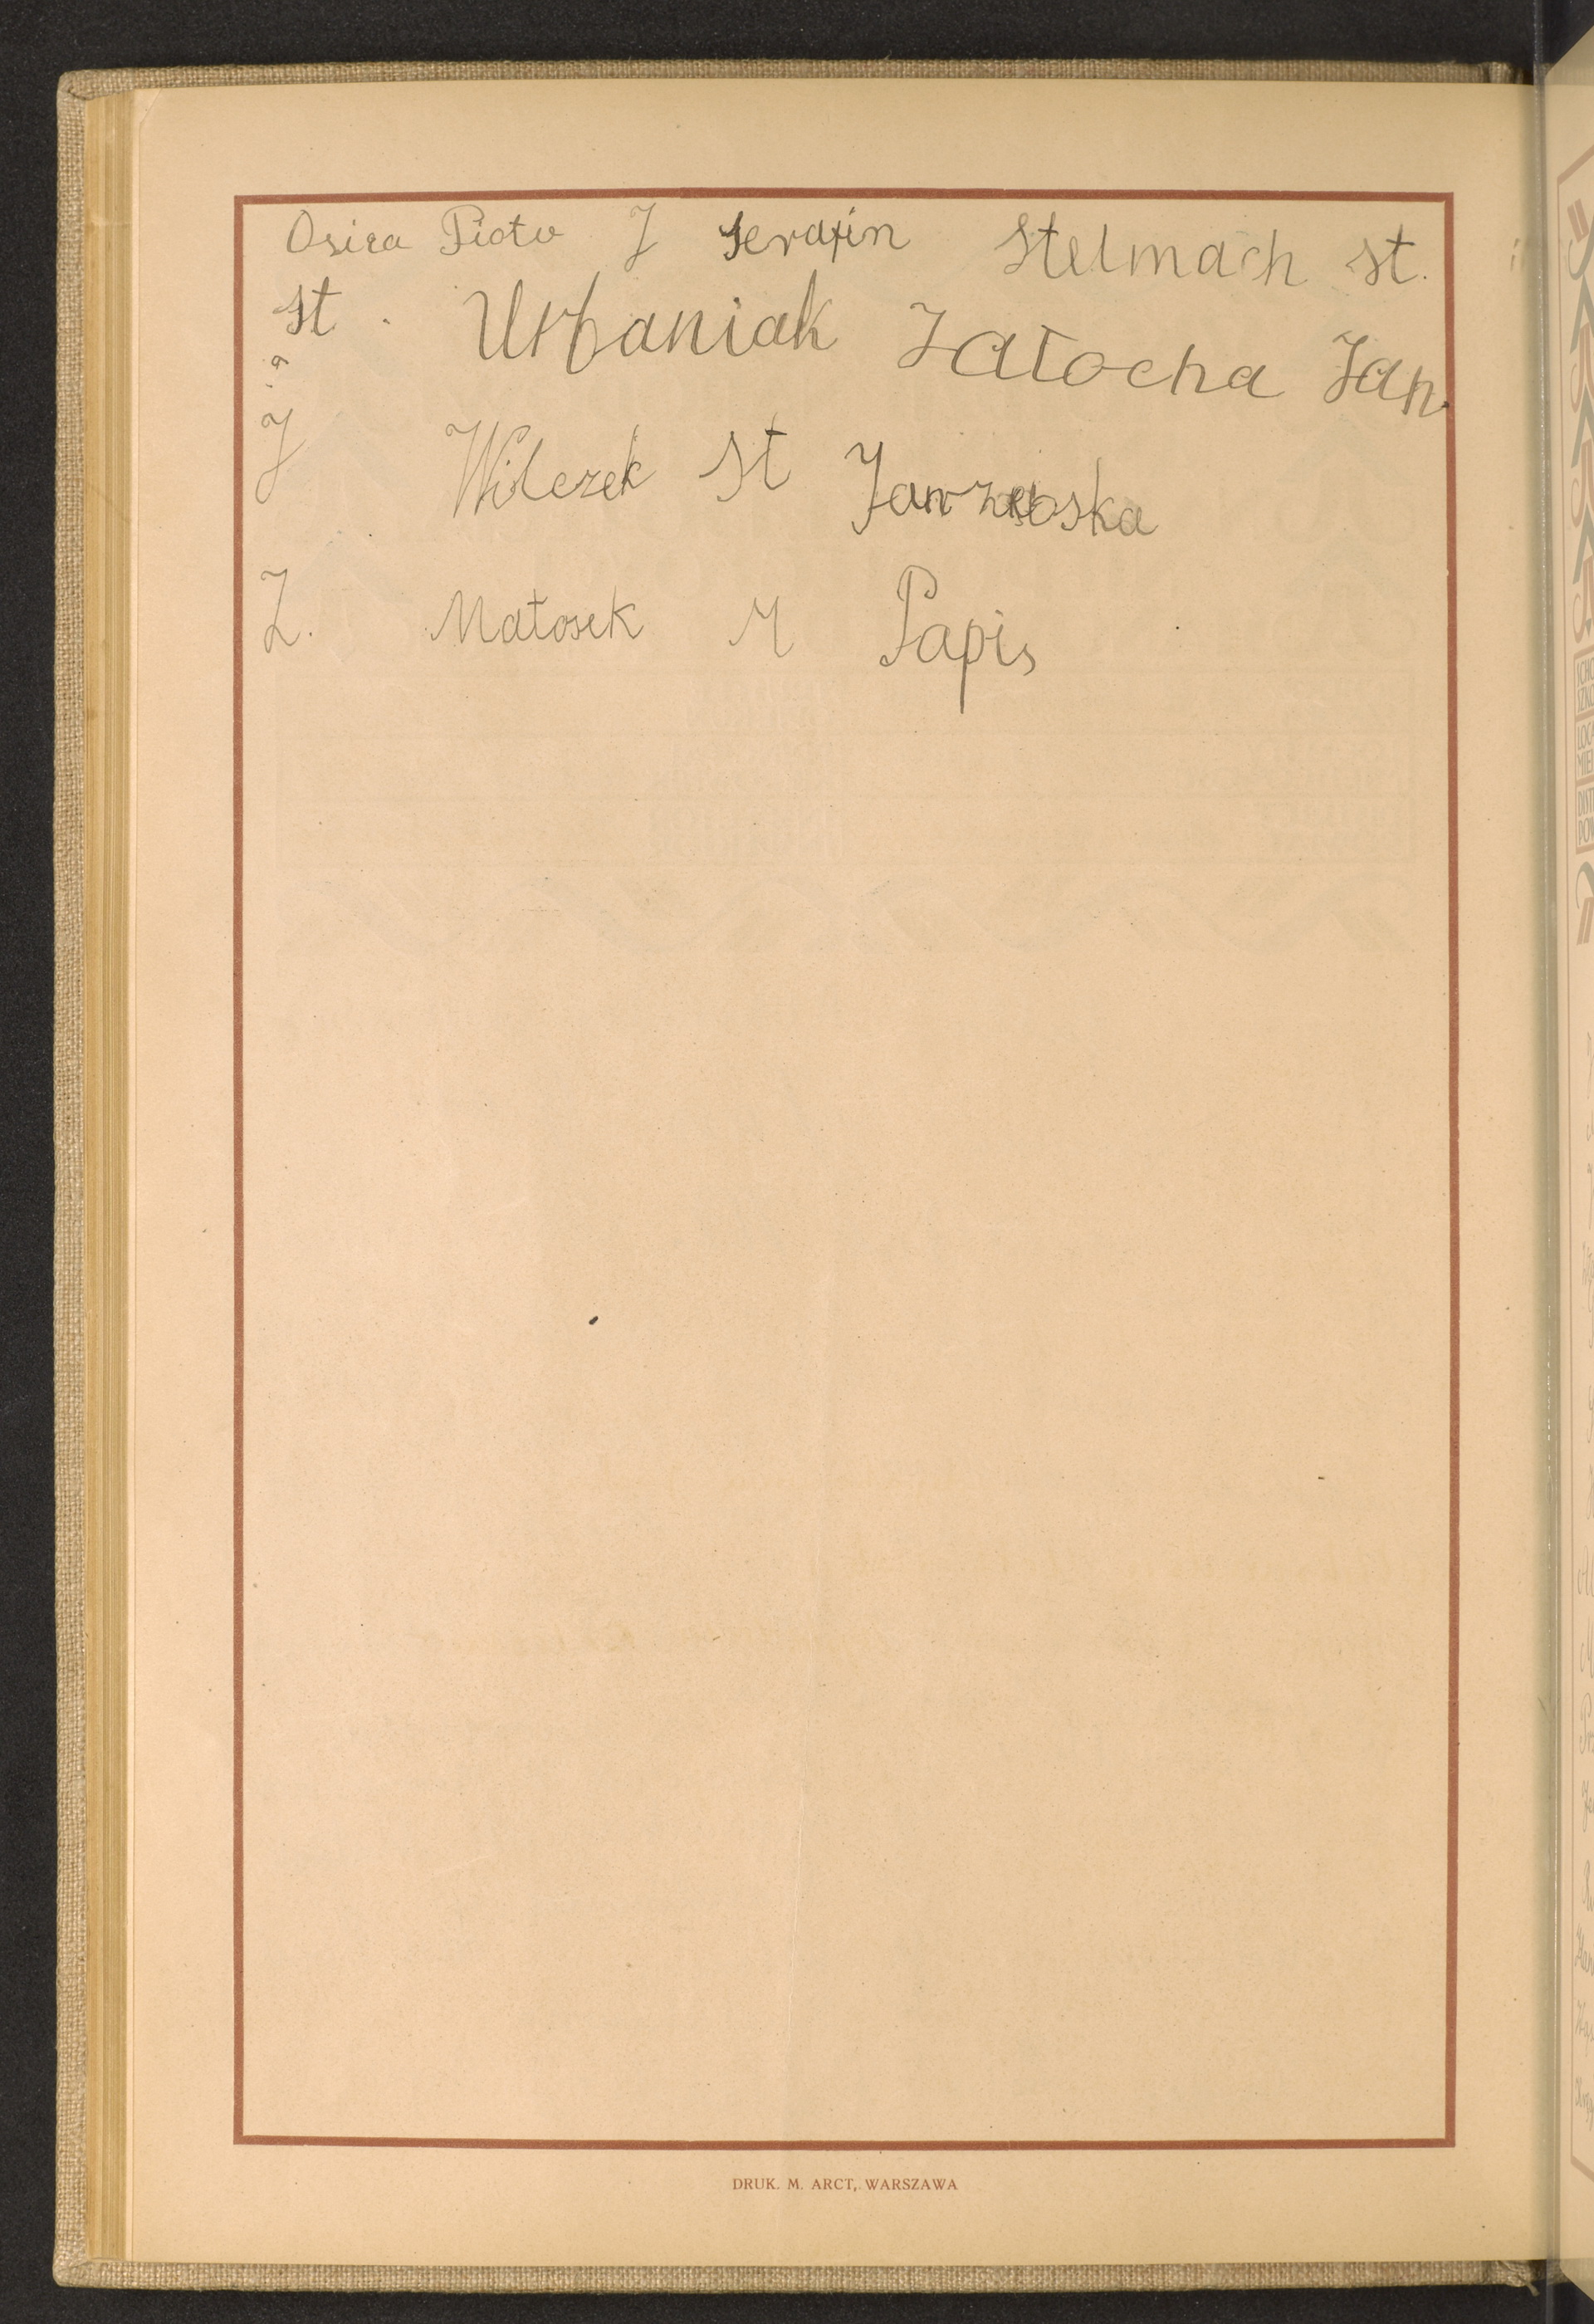 Osica Piotr J Serafin Stelmach st.
st. Urbaniak Jałocha Jan.
J Wilczek St Jarzębska
Z. Matosek M Papis
DRUK. M. ARCT, WARSZAWA